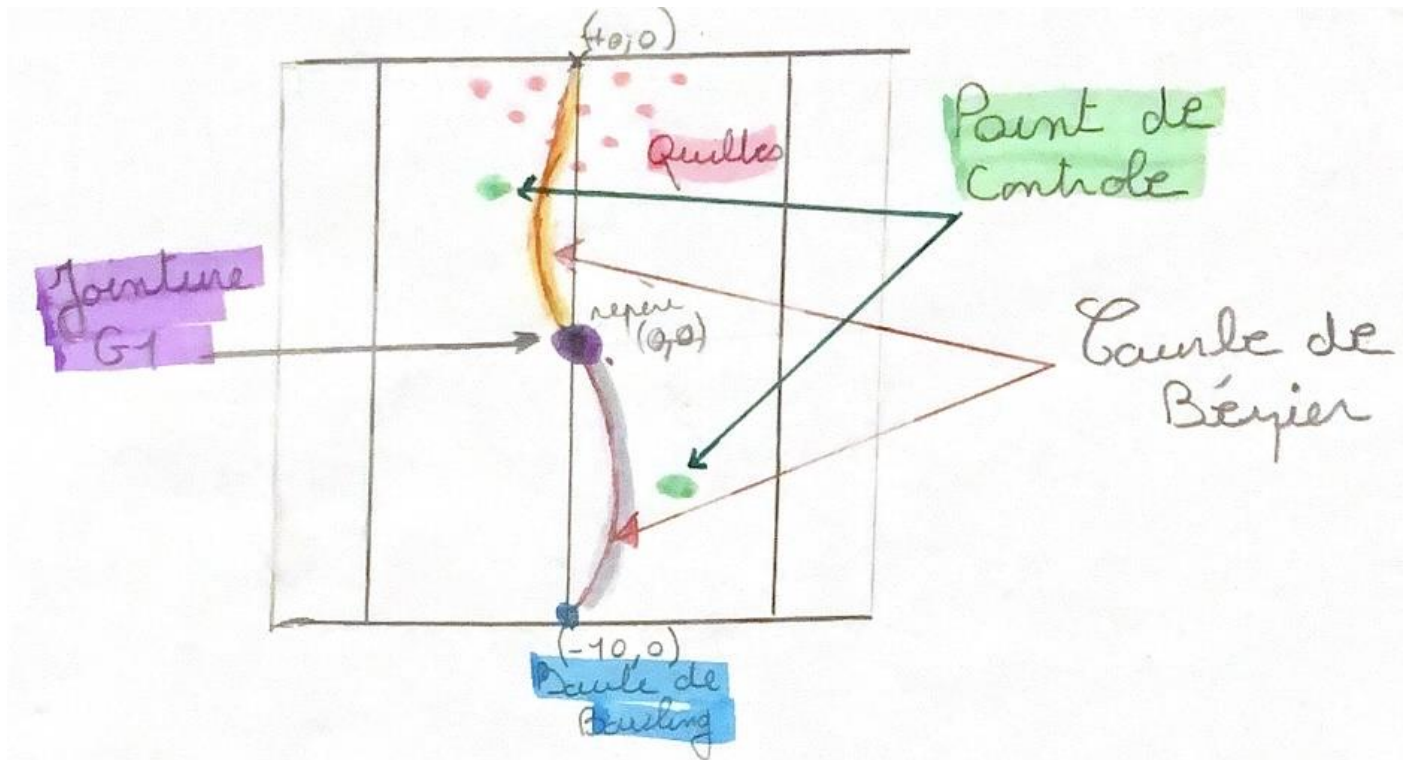 (10,0)
Quilles
Point de
Controle
Jointure
G1
repère
(0,0)
Courbe de
Bézier
(-10,0)
Boule de
Bowling